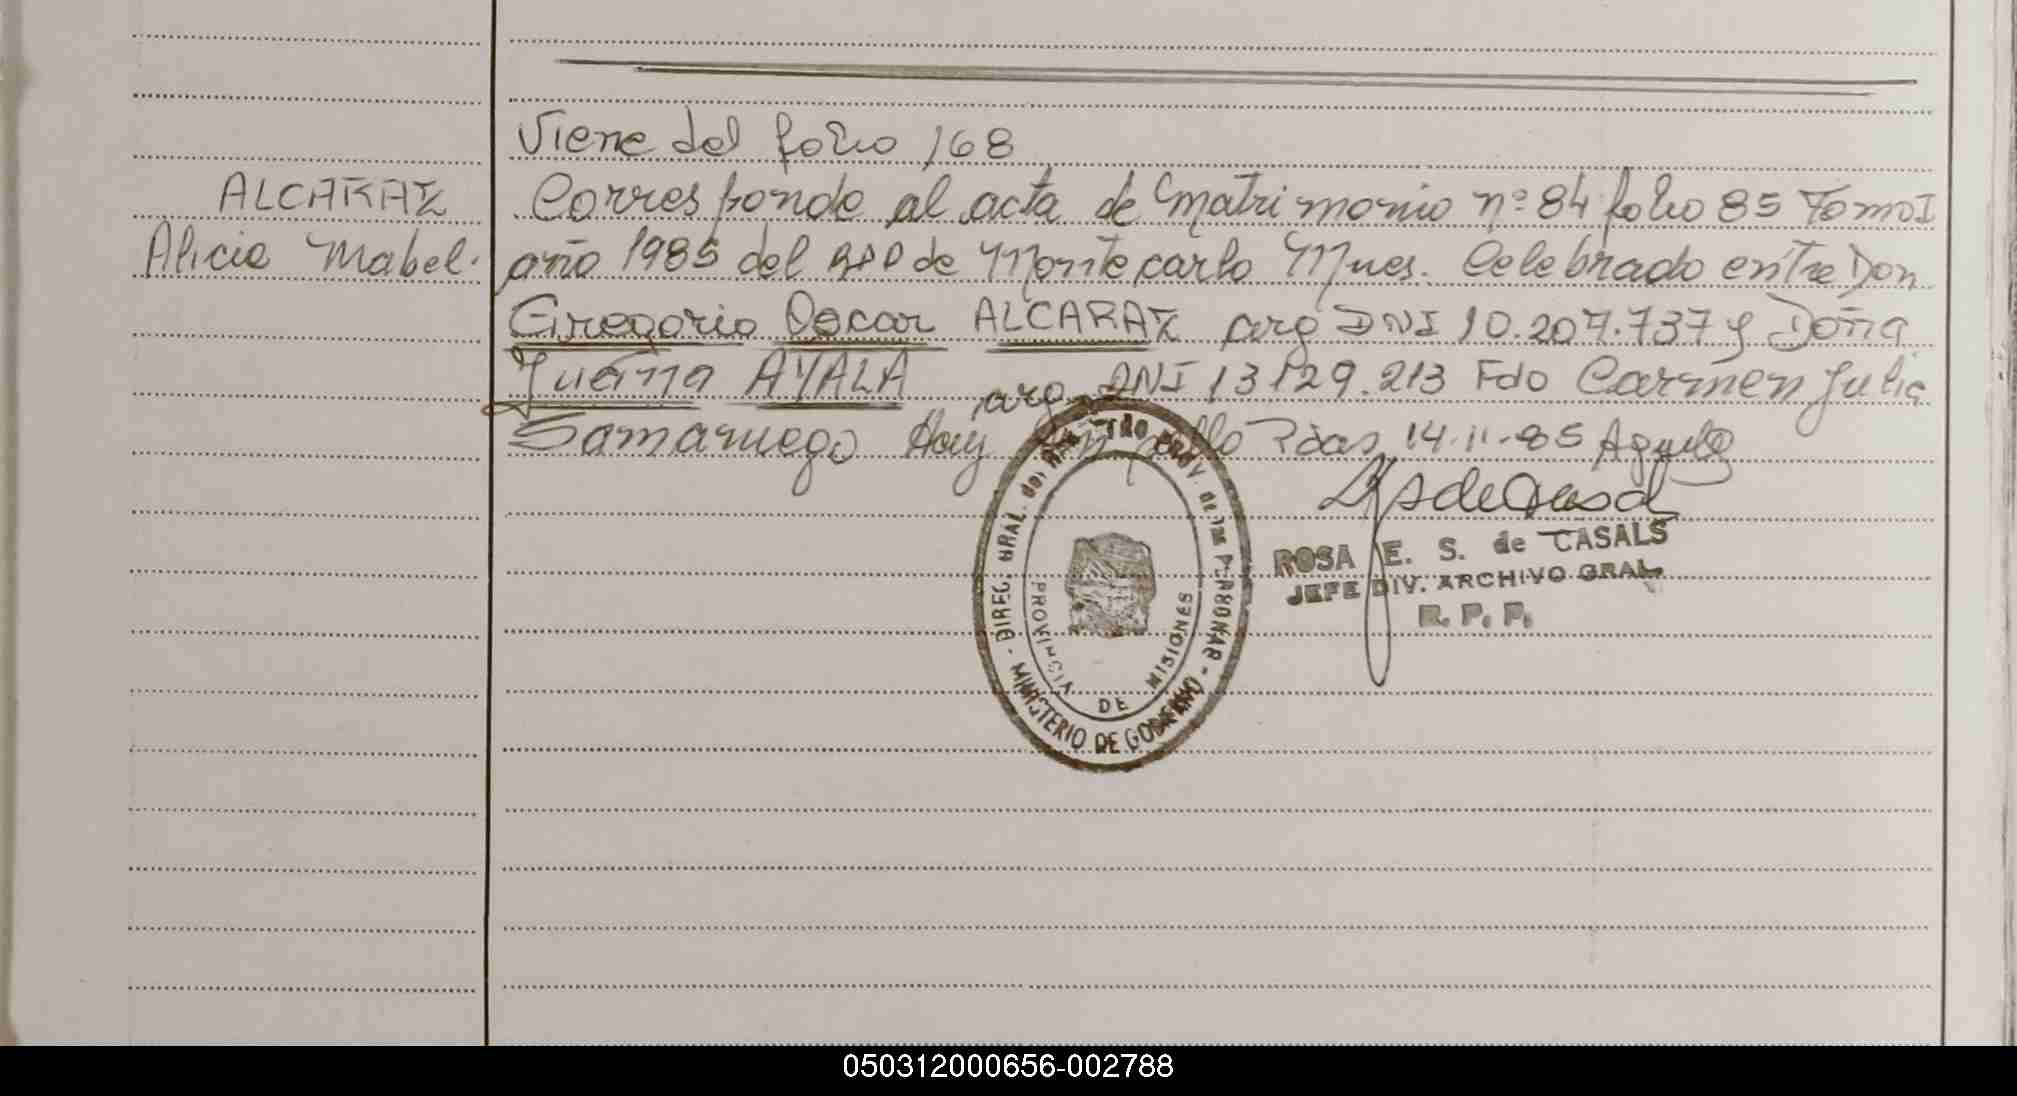 Viene del folio 168
ALCARAZ
Alicia Mabel.
Corresponde al acta de Matrimonio nº 84 folio 85 Tomo I
año 1985 del de Montecarlo Mnes. Celebrado entre Don
Gregorio Oscar ALCARAZ arg DNI 10.207.737 y Doña
Juana AYALA arg DNI 13129.213 Fdo Carmen Julia
Samaniego Hay Pdas 14-11-85
ROSA E. S. de CASALS
JEFE DIV. ARCHIVO GRAL.
R. P. P.
DIREC. GRAL. del PROV. de las PERSONAS - MINISTERIO DE GOBIERNO -
PROVINCIA DE MISIONES
050312000656-002788